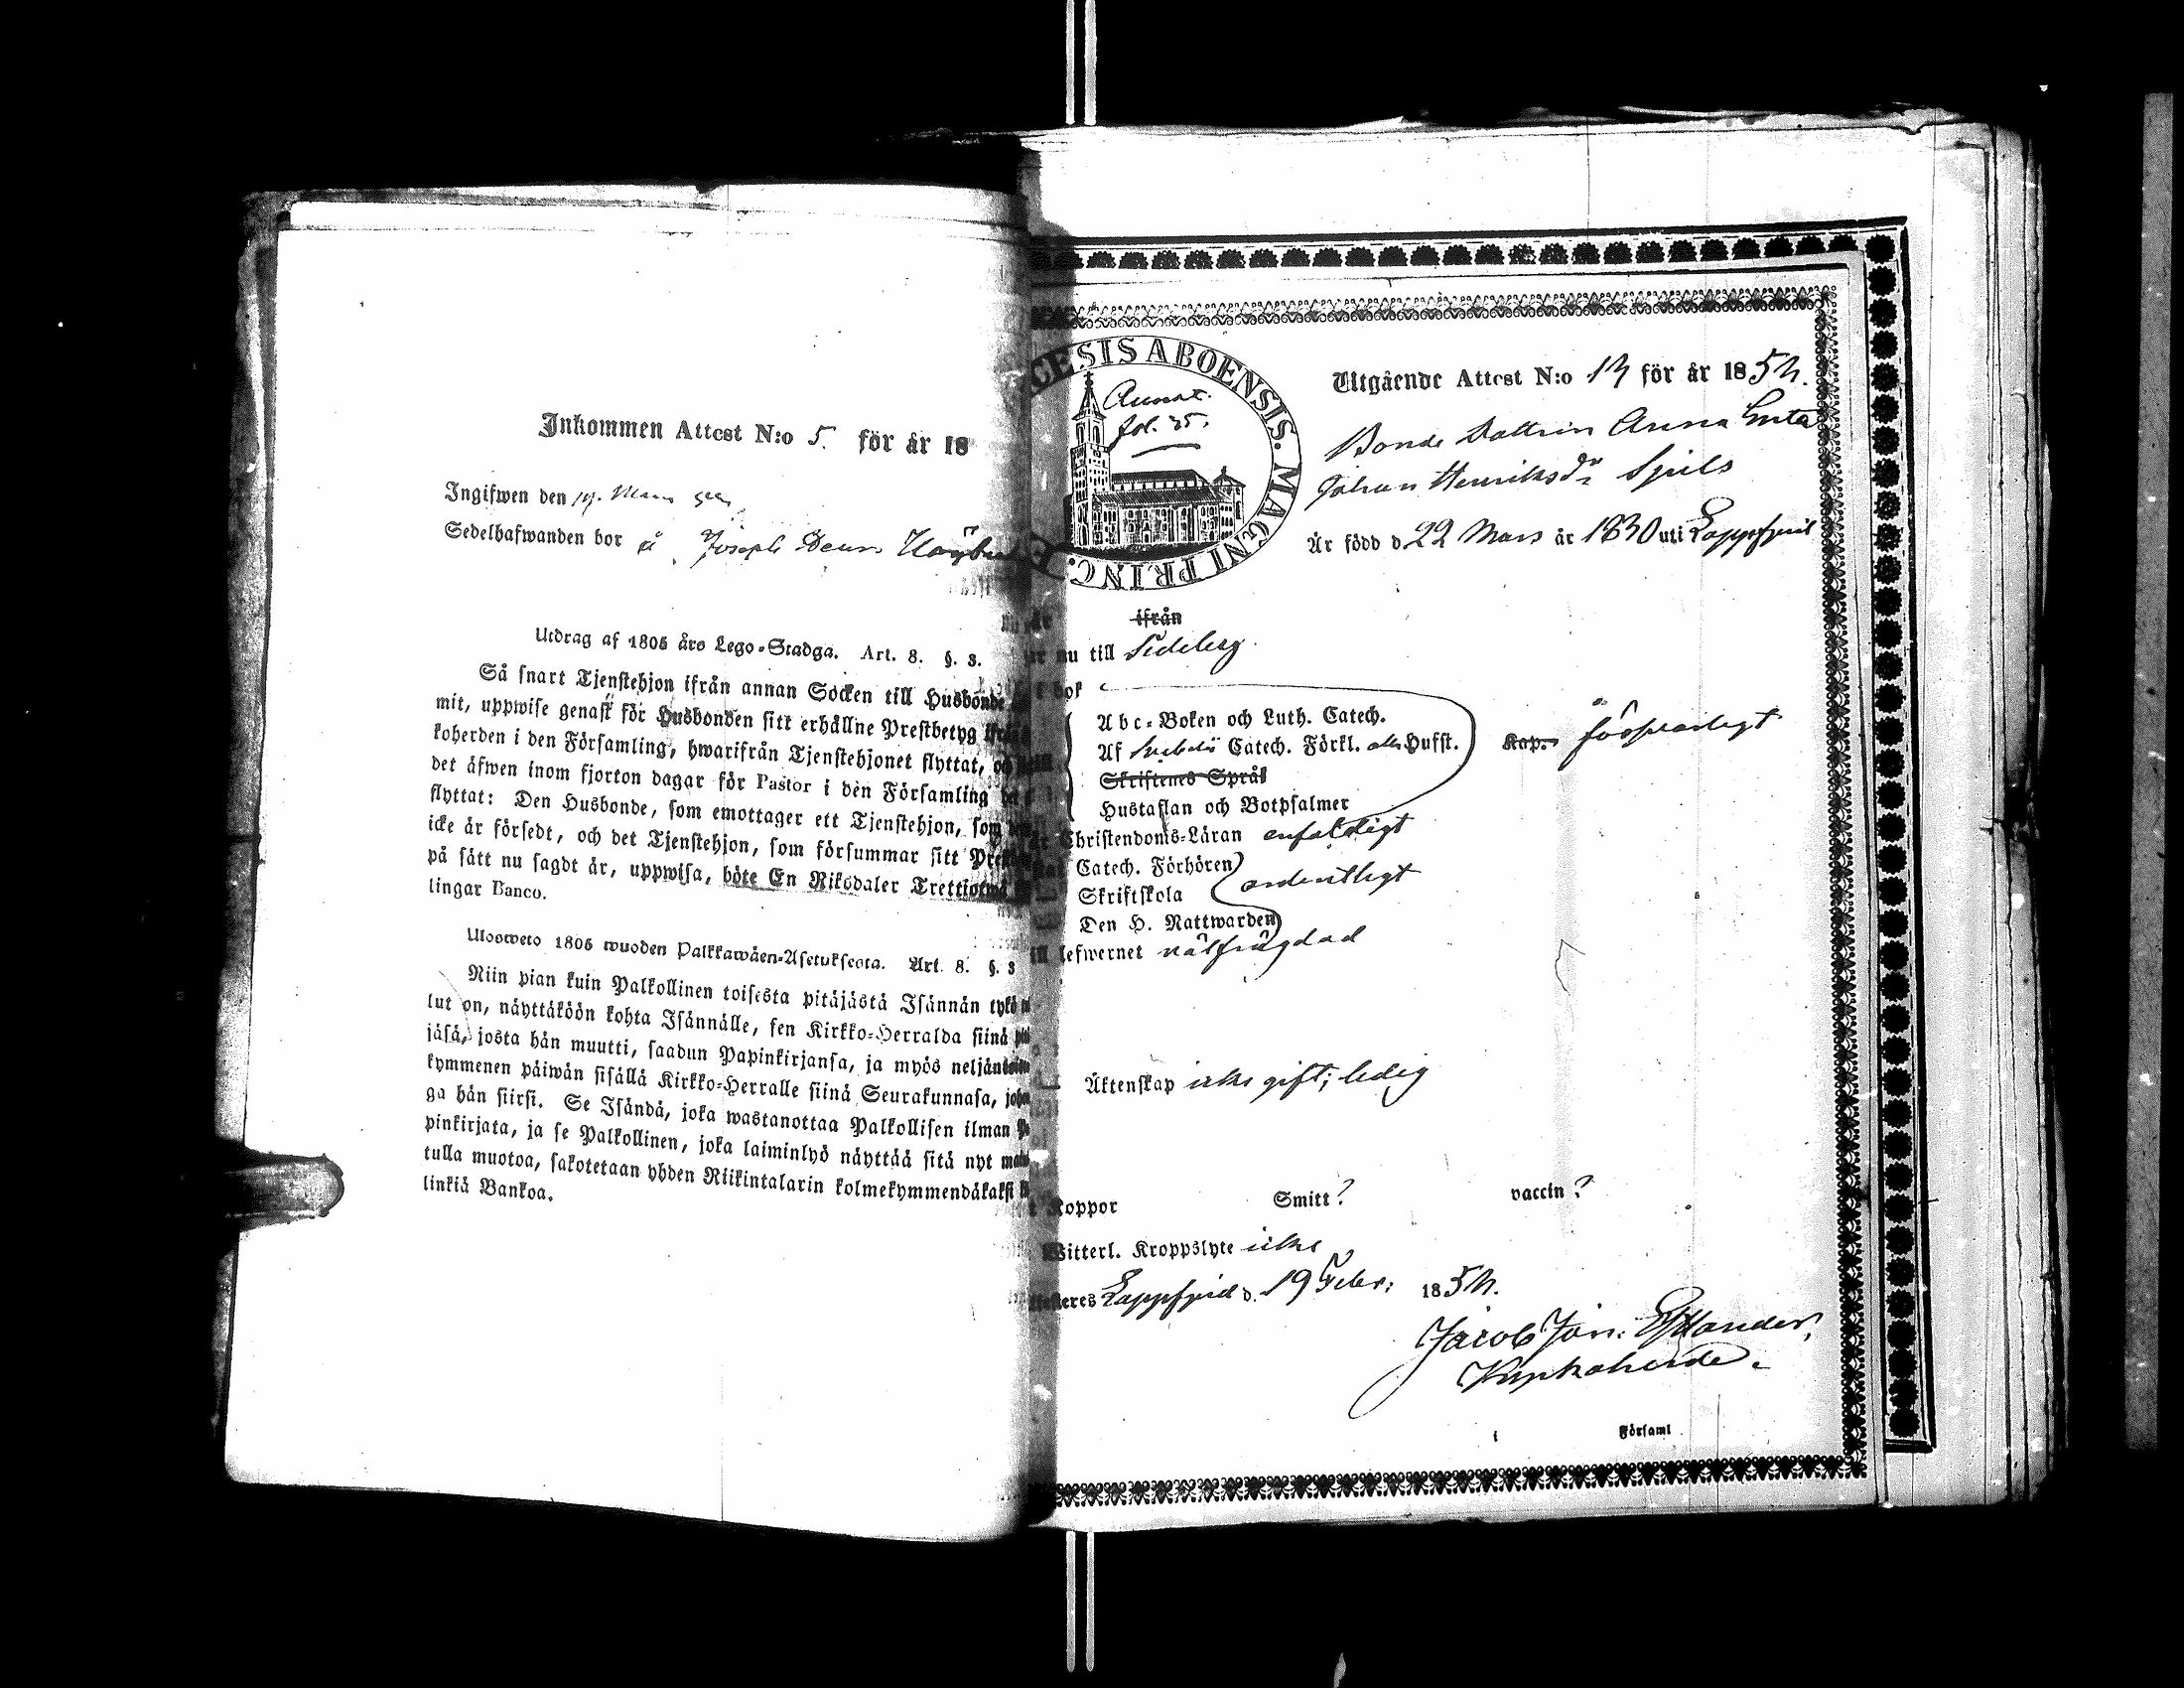 Inkommen Attest N:o 5. för år 18
Ingifwen den 19. Mars
Sedelhafwanden bor å Joseph
Utdrag af 1805 års Lego-Stadga. Art. 8. §. 3.
Så snart Tjenstehjon ifrån annan Socken till Husbonde
mit, uppwise genast för Husbonden sitt erhållne Prestbetyg ifrån
koherden i den Församling, hwarifrån Tjenstehjonet flyttat, och
det äfwen inom fjorton dagar för Pastor i den Församling
flyttat: Den Husbonde, som emottager ett Tjenstehjon, som
icke är försedt, och det Tjenstehjon, som försummar sitt
på sätt nu sagdt är, uppwisa, böte En Riksdaler Trettiotwå
lingar Banco.
Ulosweto 1805 wuoden Palkkawäen-Asetuksesta. Art. 8. §. 3
Niin pian kuin Palkollinen toisesta pitäjästä Isännän tykö
lut on, näyttäköön kohta Isännälle, sen Kirkko-Herralda siinä
jäsä, josta hän muutti, saadun Papinkirjansa, ja myös neljän
kymmenen päiwän sisällä Kirkko-Herralle siinä Seurakunnasa,
ga hän siirsi. Se Isändä, joka wastanottaa Palkollisen ilman
pinkirjata, ja se Palkollinen, joka laiminlyö näyttää sitä nyt
tulla muotoa, sakotetaan yhden Riikintalarin kolmekymmendäkaksi
linkiä Bankoa.
CESIS ABOENSIS. MAGNI PRINC.
Annot.
fol. 35.
Utgående Attest N:o 13 för år 1854.
Bonde Dottren Anna Greta
Johan Henriksdr Spils
Är född d 22 Mars år 1830 uti Lappfjerd
ifrån
nu till Sideby
bok
Abc-Boken och Luth. Catech.
Af Svebelii Catech. Förkl. Husst.
Kap. försvarligt
Skriftenes Språk
Hustaflan och Botpsalmer
Christendoms-Läran enfaldigt
Catech. Förhören
Skriftskola ordentligt
Den H. Nattwarden
till lefwernet välfrägdad
Äktenskap icke gift; ledig
Koppor Smitt? vaccin?
Witterl. Kroppslyte icke
Lappfjerd d. 19 Febr: 1854.
Jacob Jon: Estlander,
Kyrkoherde.
i Församl